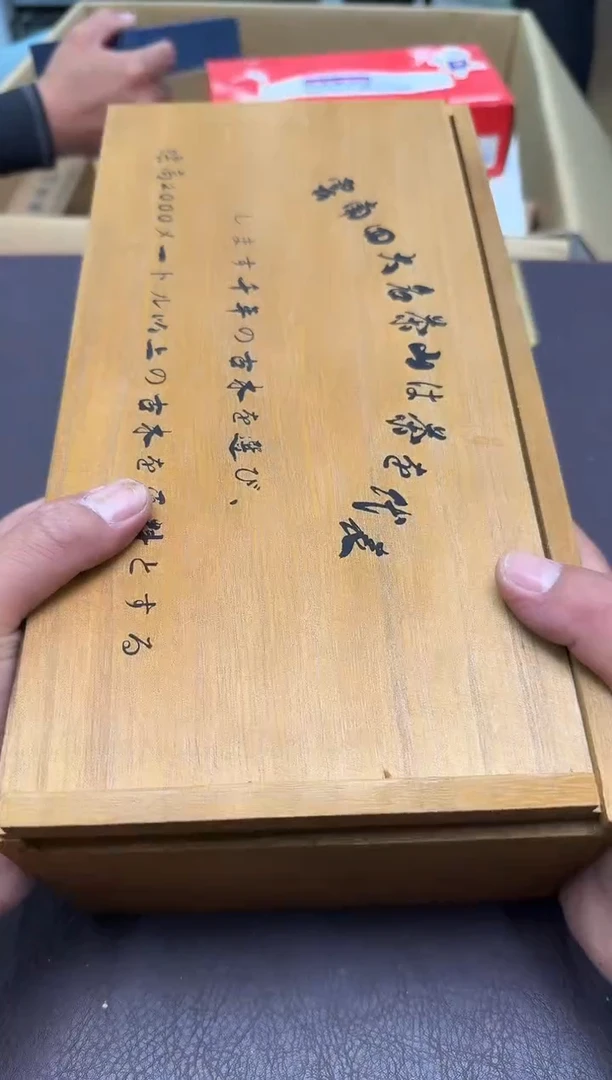 雲南四大名茶山は茶を代表
します千年の古木を選び、
標高2000メートル以上の古木を原料とする